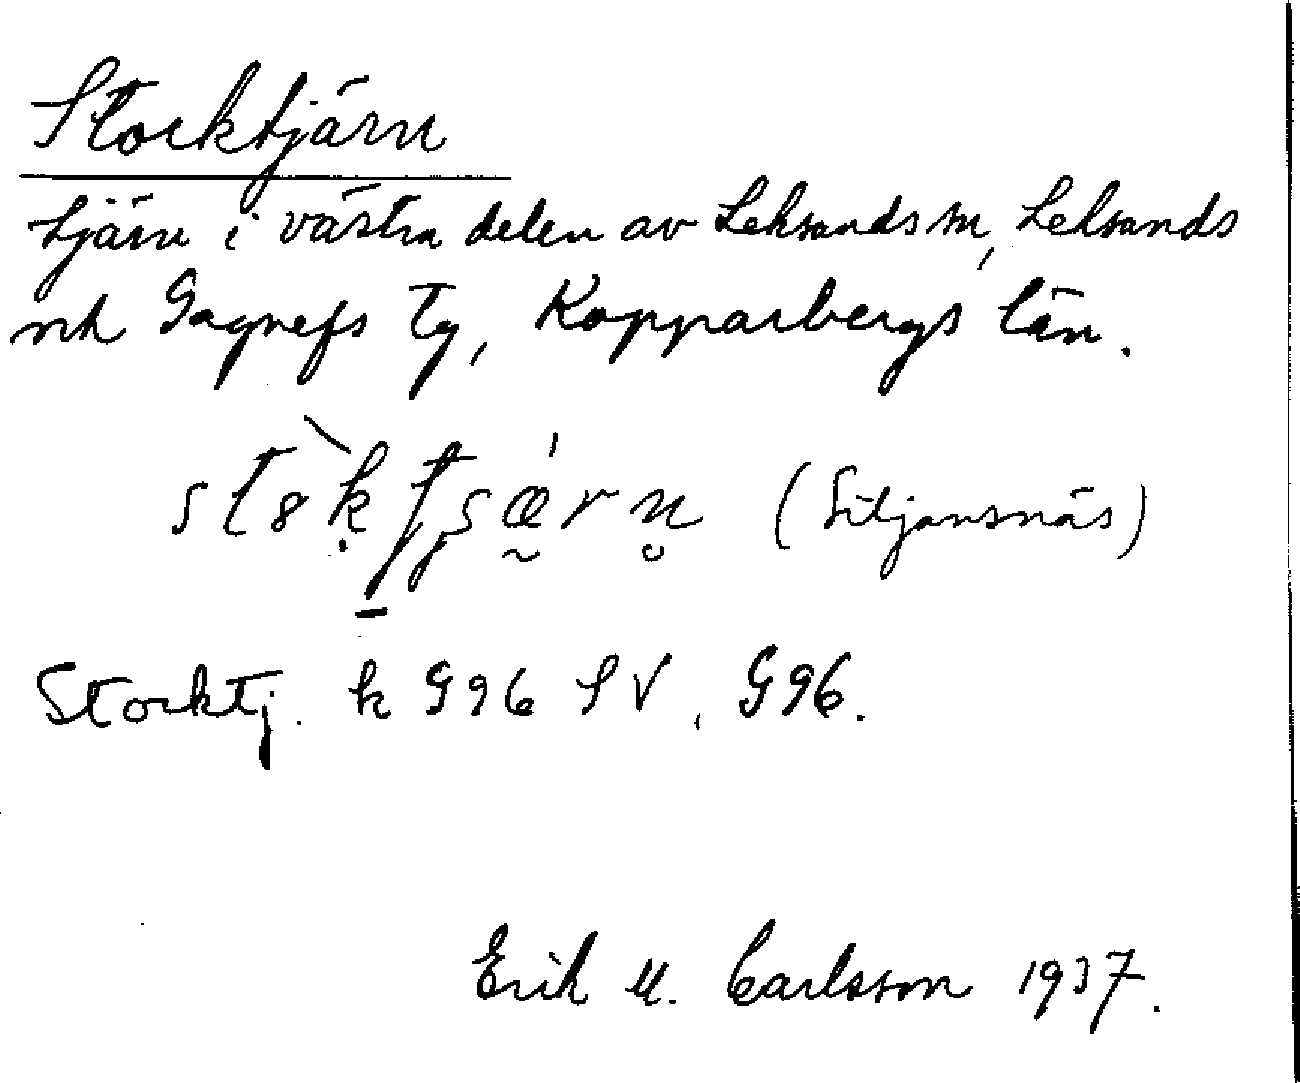 Stocktjärn
tjärn i västra delen av Leksands sn, Leksands
och Gagnefs tg, Kopparbergs län.
(Siljansnäs)
Stocktj. k G96 SV, G96.
Erik M. Carlsson 1937.